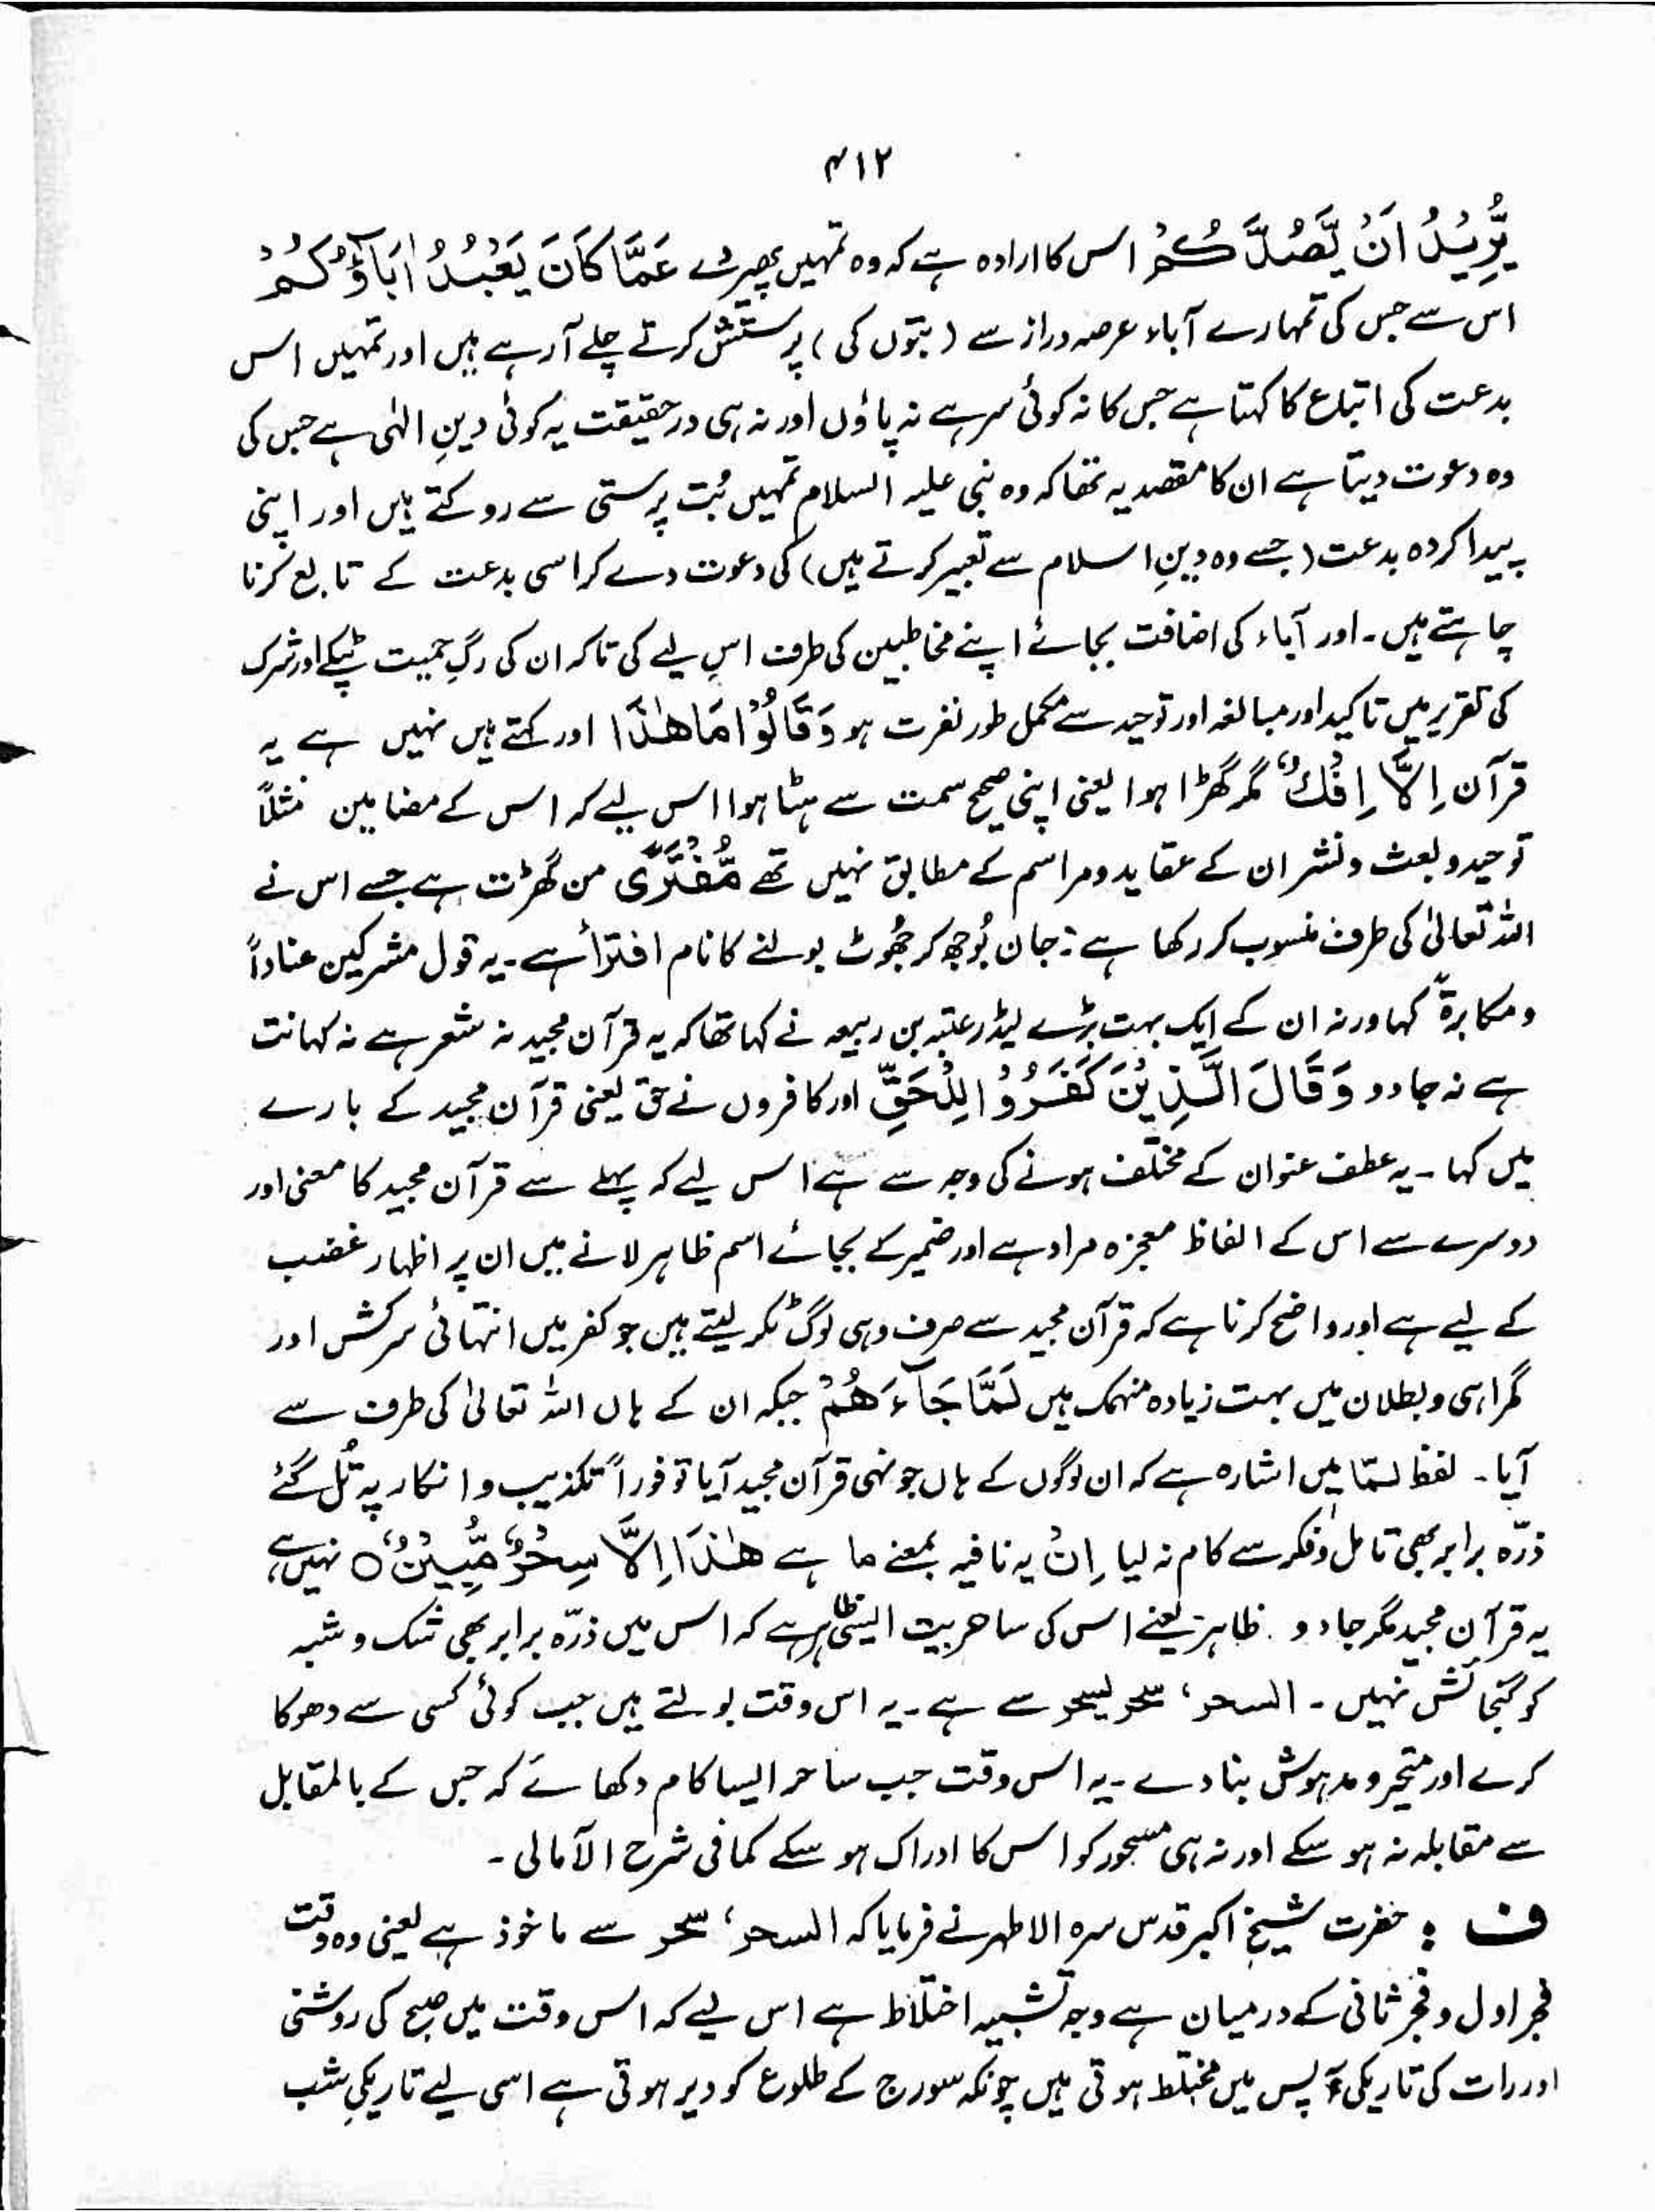 ۴۱۲
یُّرِیْدُ اَنْ یَّصُدَّکُمْ اس کا ارادہ ہے کہ وہ تمہیں پھیر دے عَمَّا کَانَ یَعْبُدُ اٰبَآؤُکُمْ
اس سے جس کی تمہارے آباء عرصہ دراز سے (بتوں کی) پرستش کرتے چلے آ رہے ہیں اور تمہیں اس
بدعت کی اتباع کا کہتا ہے جس کا نہ کوئی سر ہے نہ پاؤں اور نہ ہی درحقیقت یہ کوئی دینِ الہٰی ہے جس کی
وہ دعوت دیتا ہے ان کا مقصد یہ تھا کہ وہ نبی علیہ السلام تمہیں بُت پرستی سے روکتے ہیں اور اپنی
پیدا کردہ بدعت (جسے وہ دینِ اسلام سے تعبیر کرتے ہیں) کی دعوت دے کر اسی بدعت کے تابع کرنا
چاہتے ہیں۔ اور آباء کی اضافت بجائے اپنے مخاطبین کی طرف اس لیے کی تاکہ ان کی رگِ حمیت ٹپکے اور شرک
کی تقریر میں تاکید اور مبالغہ اور توحید سے مکمل طور نفرت ہو وَقَالُوْا مَا ھٰذَا اور کہتے ہیں نہیں ہے یہ
قرآن اِلَّا اِفْکٌ مگر گھڑا ہوا یعنی اپنی صحیح سمت سے ہٹا ہوا اس لیے کہ اس کے مضامین مثلاً
توحید و بعث و نشر ان کے عقاید و مراسم کے مطابق نہیں تھے مُّفْتَرًی من گھڑت ہے جسے اس نے
اللہ تعالیٰ کی طرف منسوب کر رکھا ہے : جان بُوجھ کر جُھوٹ بولنے کا نام افتراٴ ہے۔ یہ قول مشرکین عناداً
و مکابرۃً کہا ورنہ ان کے ایک بہت بڑے لیڈر عتبہ بن ربیعہ نے کہا تھا کہ یہ قرآن مجید نہ شعر ہے نہ کہانت
ہے نہ جادو وَقَالَ الَّذِیْنَ کَفَرُوْا لِلْحَقِّ اور کافروں نے حق یعنی قرآن مجید کے بارے
میں کہا ۔ یہ عطف عنوان کے مختلف ہونے کی وجہ سے ہے اس لیے کہ پہلے سے قرآن مجید کا معنی اور
دوسرے سے اس کے الفاظ معجزہ مراد ہے اور ضمیر کے بجائے اسم ظاہر لانے میں ان پر اظہار غضب
کے لیے ہے اور واضح کرنا ہے کہ قرآن مجید سے صرف وہی لوگ ٹکر لیتے ہیں جو کفر میں انتہائی سرکش اور
گمراہی و بطلان میں بہت زیادہ منہمک ہیں لَمَّا جَآءَھُمْ جبکہ ان کے ہاں اللہ تعالیٰ کی طرف سے
آیا۔ لفظ لمّا میں اشارہ ہے کہ ان لوگوں کے ہاں جونہی قرآن مجید آیا تو فوراً تکذیب و انکار پہ تُل گئے
ذرّہ برابر بھی تامل و فکر سے کام نہ لیا اِنْ یہ نافیہ بمعنے ما ہے ھٰذَا اِلَّا سِحْرٌ مُّبِیْنٌ ○ نہیں ہے،
یہ قرآن مجید مگر جادو ظاہر یعنے اس کی ساحریت ایسی ظاہر ہے کہ اس میں ذرّہ برابر بھی شک و شبہ
کو گنجائش نہیں ۔ السحر، سحر یسحر سے ہے۔ یہ اس وقت بولتے ہیں جب کوئی کسی سے دھوکا
کرے اور متحیر و مدہوش بنا دے ۔ یہ اس وقت جب ساحر ایسا کام دکھائے کہ جس کے بالمقابل
سے مقابلہ نہ ہو سکے اور نہ ہی مسحور کو اس کا ادراک ہو سکے کما فی شرح الآمالی ۔
ف : حضرت شیخ اکبر قدس سرہ الاطہر نے فرمایا کہ السحر، سحر سے ماخوذ ہے یعنی وہ وقت
فجر اول و فجر ثانی کے درمیان ہے وجہ تشبیہ اختلاط ہے اس لیے کہ اس وقت میں صبح کی روشنی
اور رات کی تاریکی آپس میں مختلط ہوتی ہیں چونکہ سورج کے طلوع کو دیر ہوتی ہے اسی لیے تاریکیِ شب